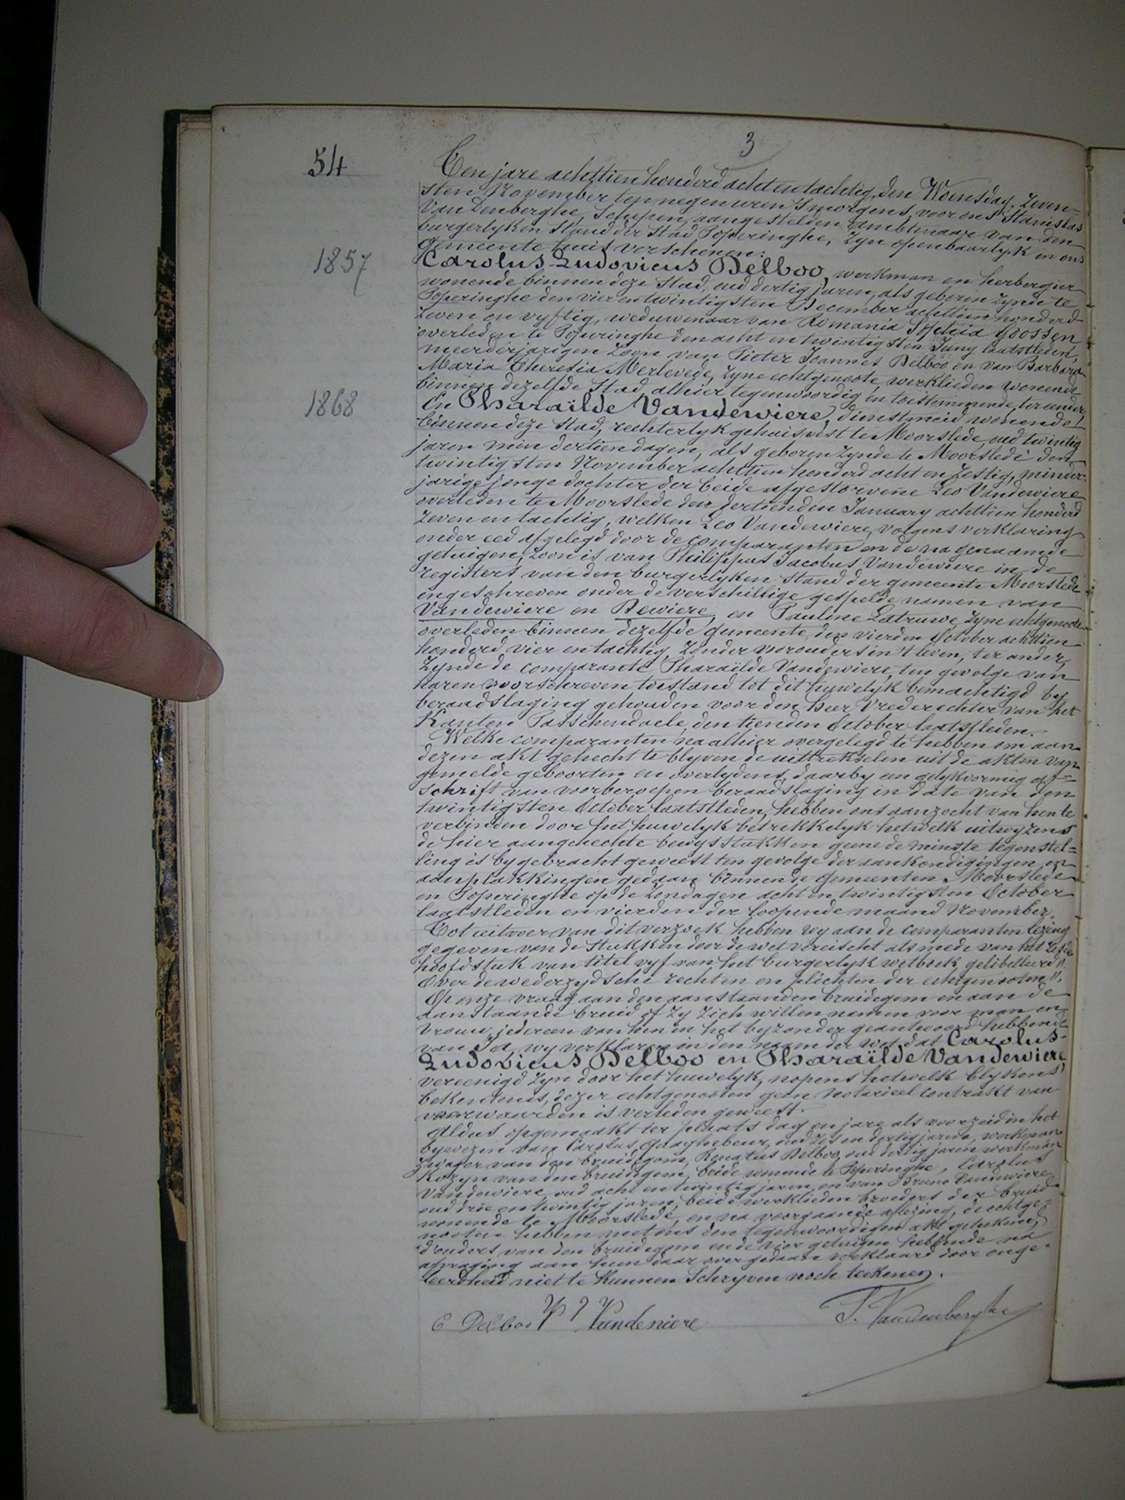 3
54
Ten jare achttien honderd acht en tachtig, den Woensdag, zeven-
sten November ten negen uren 's morgens, voor ons Stanislas
Van Denberghe, Schepen, aangestelden Ambtenaar van den
burgerlyken stand der stad Poperinghe, zyn openbaarlyk in ons
gemeente huis verschenen:
1857
Carolus-Ludovicus Delboo, werkman en herbergier
wonende binnen deze stad, oud dertig jaren, als geboren zynde te
Poperinghe den vier en twintigsten December achttien honderd
zeven en vyftig, weduwenaar van Romania Goossen
overleden te Poperinghe den acht en twintigsten Juny laatstleden,
meerderjarigen zoon van Pieter Joannes Delboo en van Barbara
Maria Theresia Merlevede, zyne echtgenoote, werklieden wonende
binnen dezelfde stad, alhier tegenwoordig en toestemmende, ter eener
1868
En Pharaïlde Vandewiere, dienstmeid wonende
binnen deze stad, rechterlyk gehuisvest te Moorslede, oud twintig
jaren min dertien dagen, als geboren zynde te Moorslede den
twintigsten November achttien honderd acht en zestig, minder-
jarige jonge dochter der beide afgestorvene Leo Vandewiere
overleden te Moorslede den dertienden January achttien honderd
zeven en tachtig, welken Leo Vandewiere, volgens verklaring
onder eed afgelegd door de comparanten en de nagenaamde
getuigen, zoon is van Philippus Jacobus Vandewiere in de
registers van den burgerlyken stand der gemeente Moorslede
ingeschreven onder de verschillige gespelde namen van
Vandewiere en Dewiere, en Pauline Labruwe, zyne echtgenoote
overleden binnen dezelfde gemeente, den vierden October achttien
honderd vier en tachtig, zonder voorouders in 't leven, ter ander,
zynde de comparante Pharaïlde Vandewiere, ten gevolge van
haren voorschreven toestand tot dit huwelyk bemachtigd by
beraadslaging gehouden voor den Heer Vrederechter van het
Kanton Passchendaele, den tienden October laatstleden.
Welke comparanten, na alhier overgelegd te hebben om aan
dezen akt gehecht te blyven de uittrekselen uit de akten van
gemelde geboorten en overlydens, daarby een gelykvormig af-
schrift van voorberoepen beraadslaging in date van den
twintigsten October laatstleden, hebben ons aanzocht van hen te
verbinden door het huwelyk betrekkelyk hetwelk uitwyzens
de hier aangehechte bewysstukken geene de minste tegenstel-
ling is bygebracht geweest ten gevolge der aankondigingen en
aanplakkingen gedaan binnen de gemeenten Moorslede
en Poperinghe op de Zondagen acht en twintigsten October
laatstleden en vierden der loopende maand November.
Tot uitvoer van dit verzoek hebben wy aan de comparanten lezing
gegeven van de stukken door de wet vereischt als mede van het zesde
hoofdstuk van titel vyf van het burgerlyk wetboek gelibelleerd "
Over de wederzydsche rechten en plichten der echtgenooten ".
Op onze vraag aan den aanstaanden bruidegom en aan de
aanstaande bruid of zy zich willen nemen voor man en
vrouw, iedereen van hen in het byzonder geantwoord hebbende
van Ja, wy verklaren in den naam der wet dat Carolus-
Ludovicus Delboo en Pharaïlde Vandewiere
vereenigd zyn door het huwelyk, nopens hetwelk blykens
bekentenis, dezer echtgenooten geen notarieel contrakt van
voorwaarden is verleden geweest.
Aldus opgemaakt ter plaats dag en jare als voorzeid in het
bywezen van Carolus Quaghebeur, oud zes en dertig jaren, werkman
zwager van den bruidegom, Renatus Delboo, oud dertig jaren werkman
kozyn van den bruidegom, beide wonende te Poperinghe, Carolus
Vandewiere, oud acht en twintig jaren, en van Bruno Vandewiere
oud drie en twintig jaren, beide werklieden broeders der bruid
wonende te Moorslede, en na voorgaande aflezing, de echtge-
nooten hebben met ons den tegenwoordigen akt geteekend,
d'ouders van den bruidegom en de vier getuigen hebbende na
afvraging aan hun daar over gedaan verklaard door onge-
leerdheid niet te kunnen schryven noch teekenen.
C Delboo P Vandeniere S. Vandenberghe